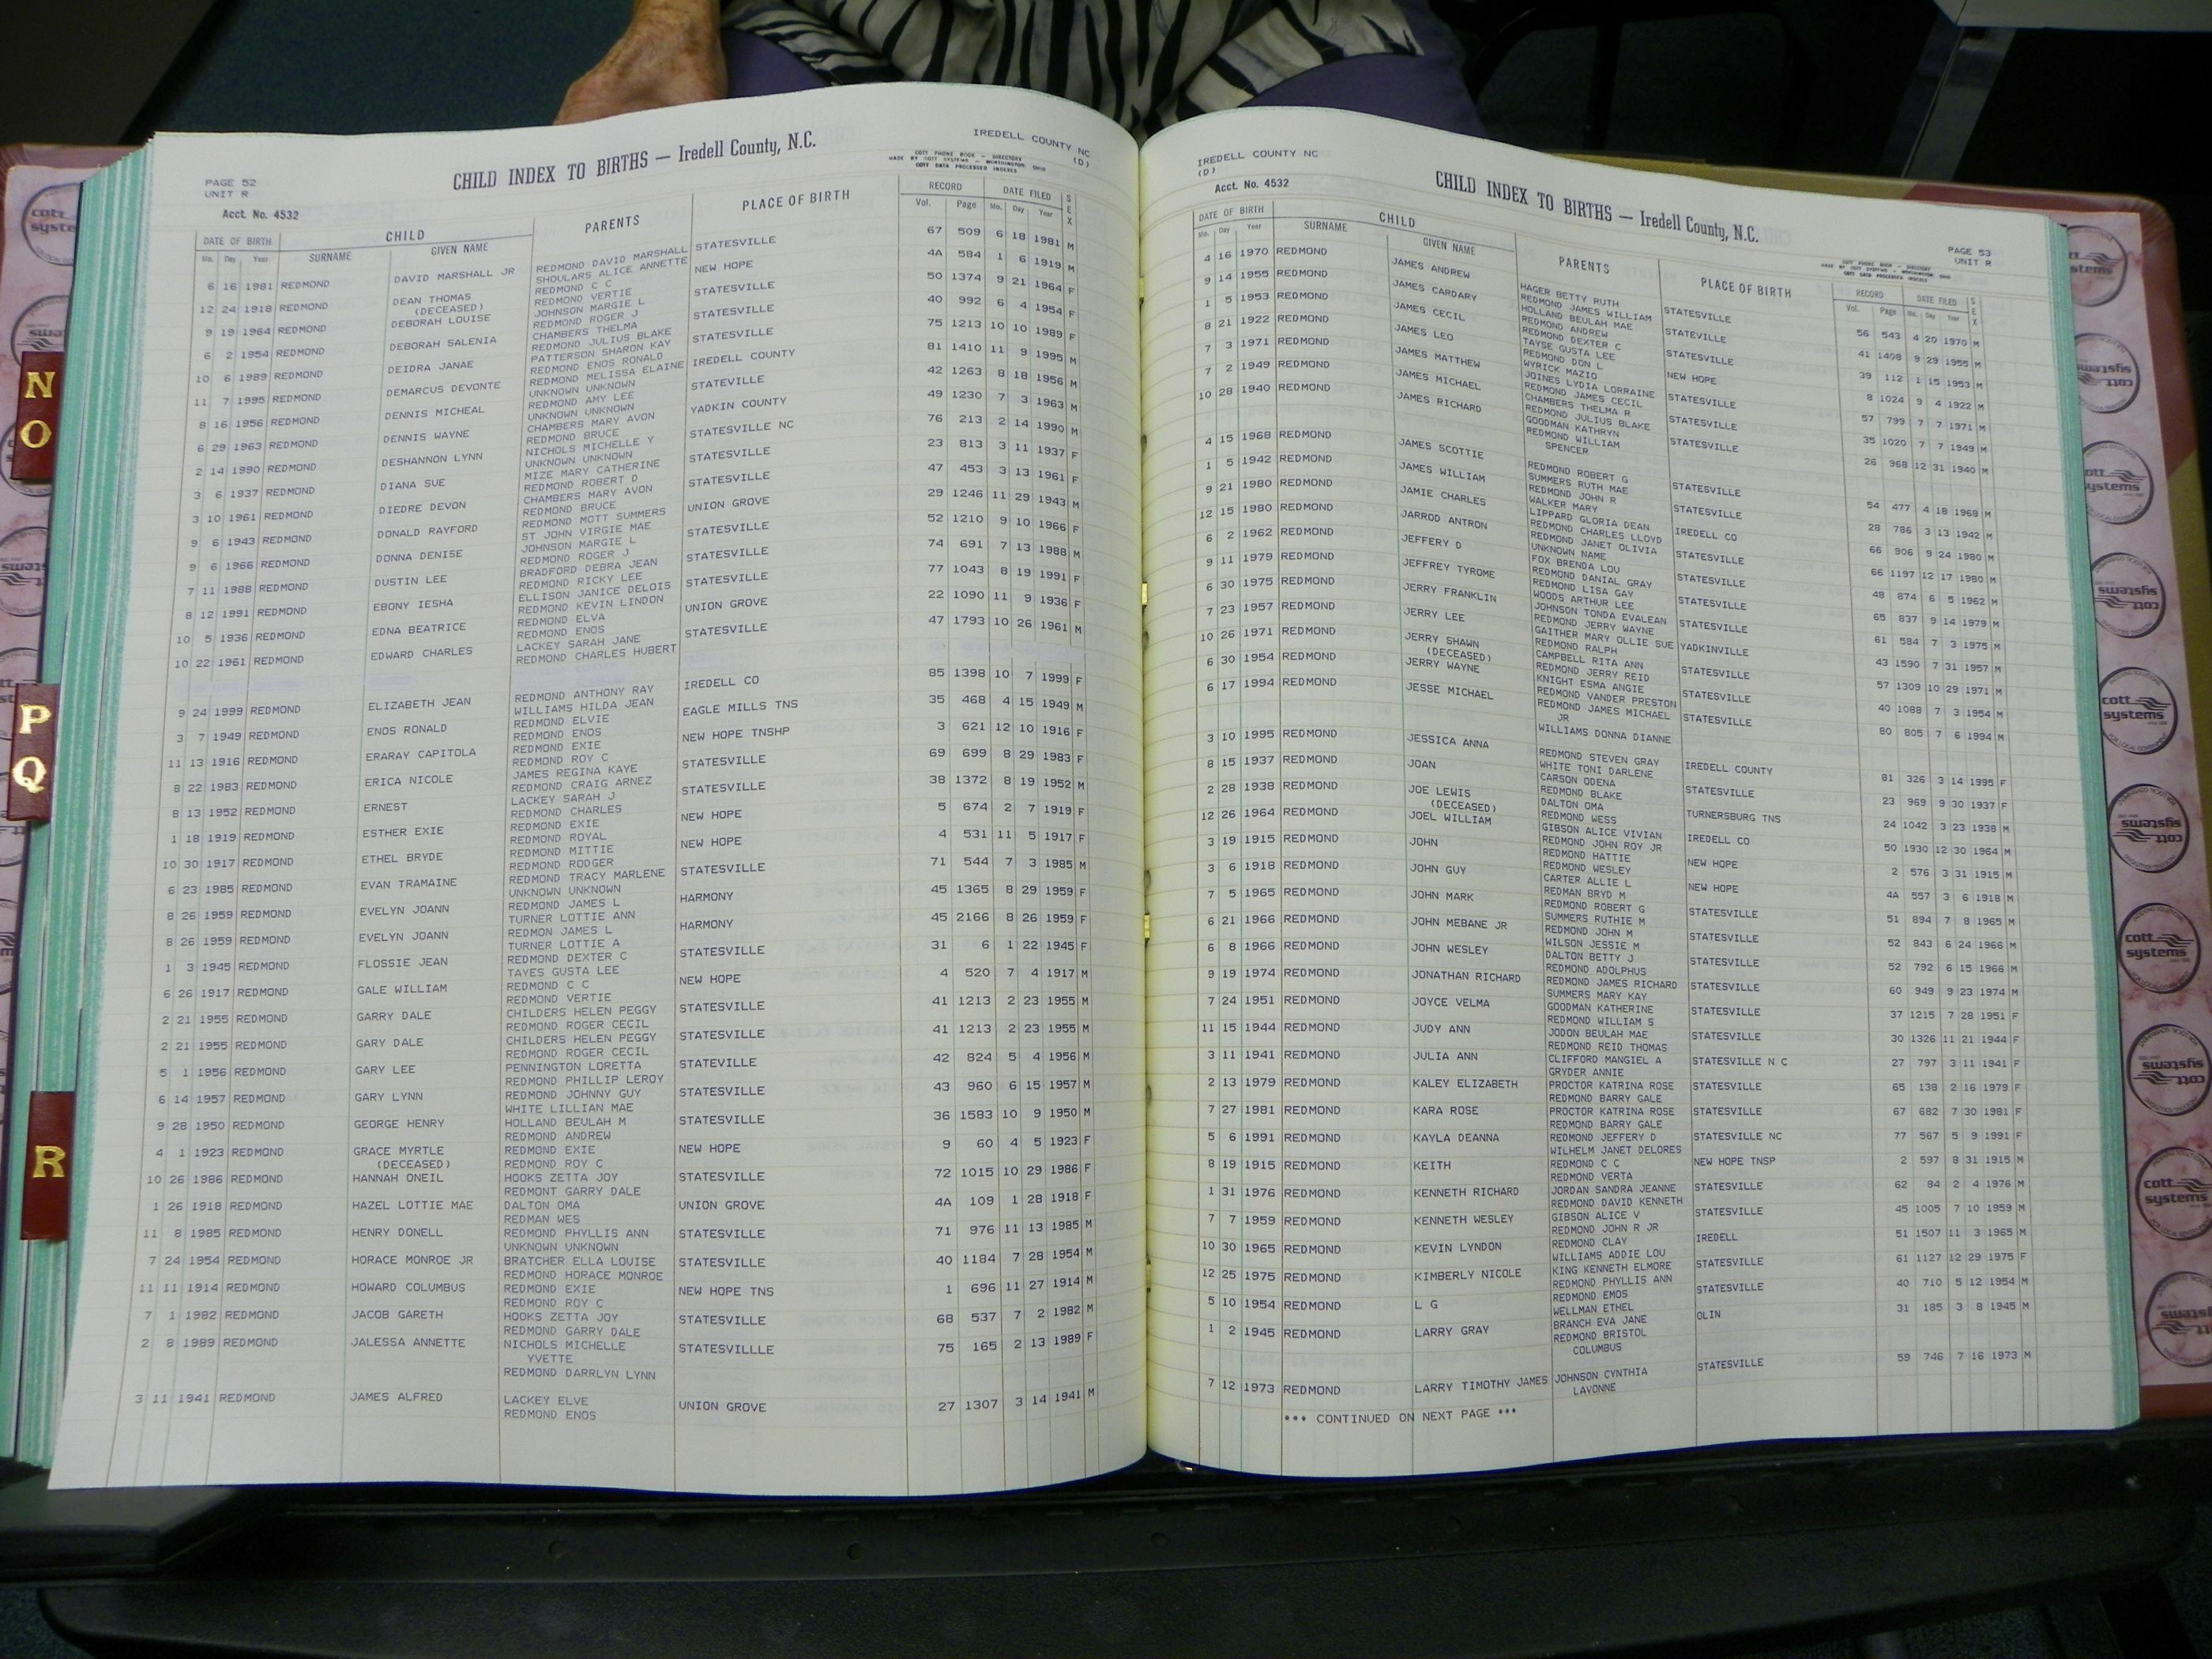 IREDELL COUNTY NC
(D)
COTT PHONE BOOK — DIRECTORY
MADE BY COTT SYSTEMS — WORTHINGTON, OHIO
COTT DATA PROCESSED INDEXES
CHILD INDEX TO BIRTHS — Iredell County, N.C.
PAGE 52
UNIT R
Acct. No. 4532
DATE OF BIRTH CHILD PARENTS PLACE OF BIRTH RECORD DATE FILED SEX
Mo. Day Year SURNAME GIVEN NAME Vol. Page Mo. Day Year
6 16 1981 REDMOND DAVID MARSHALL JR REDMOND DAVID MARSHALL STATESVILLE 67 509 6 18 1981 M
SHOULARS ALICE ANNETTE
12 24 1918 REDMOND DEAN THOMAS REDMOND C C NEW HOPE 4A 584 1 6 1919 M
(DECEASED) REDMOND VERTIE
9 19 1964 REDMOND DEBORAH LOUISE JOHNSON MARGIE L STATESVILLE 50 1374 9 21 1964 F
REDMOND ROGER J
6 2 1954 REDMOND DEBORAH SALENIA CHAMBERS THELMA STATESVILLE 40 992 6 4 1954 F
REDMOND JULIUS BLAKE
10 6 1989 REDMOND DEIDRA JANAE PATTERSON SHARON KAY STATESVILLE 75 1213 10 10 1989 F
REDMOND ENOS RONALD
11 7 1995 REDMOND DEMARCUS DEVONTE REDMOND MELISSA ELAINE IREDELL COUNTY 81 1410 11 9 1995 M
UNKNOWN UNKNOWN
8 16 1956 REDMOND DENNIS MICHEAL REDMOND AMY LEE STATEVILLE 42 1263 8 18 1956 M
UNKNOWN UNKNOWN
6 29 1963 REDMOND DENNIS WAYNE CHAMBERS MARY AVON YADKIN COUNTY 49 1230 7 3 1963 M
REDMOND BRUCE
2 14 1990 REDMOND DESHANNON LYNN NICHOLS MICHELLE Y STATESVILLE NC 76 213 2 14 1990 M
UNKNOWN UNKNOWN
3 6 1937 REDMOND DIANA SUE MIZE MARY CATHERINE STATESVILLE 23 813 3 11 1937 F
REDMOND ROBERT D
3 10 1961 REDMOND DIEDRE DEVON CHAMBERS MARY AVON STATESVILLE 47 453 3 13 1961 F
REDMOND BRUCE
9 6 1943 REDMOND DONALD RAYFORD REDMOND MOTT SUMMERS UNION GROVE 29 1246 11 29 1943 M
ST JOHN VIRGIE MAE
9 6 1966 REDMOND DONNA DENISE JOHNSON MARGIE L STATESVILLE 52 1210 9 10 1966 F
REDMOND ROGER J
7 11 1988 REDMOND DUSTIN LEE BRADFORD DEBRA JEAN STATESVILLE 74 691 7 13 1988 M
REDMOND RICKY LEE
8 12 1991 REDMOND EBONY IESHA ELLISON JANICE DELOIS STATESVILLE 77 1043 8 19 1991 F
REDMOND KEVIN LINDON
10 5 1936 REDMOND EDNA BEATRICE REDMOND ELVA UNION GROVE 22 1090 11 9 1936 F
REDMOND ENOS
10 22 1961 REDMOND EDWARD CHARLES LACKEY SARAH JANE STATESVILLE 47 1793 10 26 1961 M
REDMOND CHARLES HUBERT
9 24 1999 REDMOND ELIZABETH JEAN REDMOND ANTHONY RAY IREDELL CO 85 1398 10 7 1999 F
WILLIAMS HILDA JEAN
3 7 1949 REDMOND ENOS RONALD REDMOND ELVIE EAGLE MILLS TNS 35 468 4 15 1949 M
REDMOND ENOS
11 13 1916 REDMOND ERARAY CAPITOLA REDMOND EXIE NEW HOPE TNSHP 3 621 12 10 1916 F
REDMOND ROY C
8 22 1983 REDMOND ERICA NICOLE JAMES REGINA KAYE STATESVILLE 69 699 8 29 1983 F
REDMOND CRAIG ARNEZ
8 13 1952 REDMOND ERNEST LACKEY SARAH J STATESVILLE 38 1372 8 19 1952 M
REDMOND CHARLES
1 18 1919 REDMOND ESTHER EXIE REDMOND EXIE NEW HOPE 5 674 2 7 1919 F
REDMOND ROYAL
10 30 1917 REDMOND ETHEL BRYDE REDMOND MITTIE NEW HOPE 4 531 11 5 1917 F
REDMOND RODGER
6 23 1985 REDMOND EVAN TRAMAINE REDMOND TRACY MARLENE STATESVILLE 71 544 7 3 1985 M
UNKNOWN UNKNOWN
8 26 1959 REDMOND EVELYN JOANN REDMOND JAMES L HARMONY 45 1365 8 29 1959 F
TURNER LOTTIE ANN
8 26 1959 REDMOND EVELYN JOANN REDMON JAMES L HARMONY 45 2166 8 26 1959 F
TURNER LOTTIE A
1 3 1945 REDMOND FLOSSIE JEAN REDMOND DEXTER C STATESVILLE 31 6 1 22 1945 F
TAYES GUSTA LEE
6 26 1917 REDMOND GALE WILLIAM REDMOND C C NEW HOPE 4 520 7 4 1917 M
REDMOND VERTIE
2 21 1955 REDMOND GARRY DALE CHILDERS HELEN PEGGY STATESVILLE 41 1213 2 23 1955 M
REDMOND ROGER CECIL
2 21 1955 REDMOND GARY DALE CHILDERS HELEN PEGGY STATESVILLE 41 1213 2 23 1955 M
REDMOND ROGER CECIL
5 1 1956 REDMOND GARY LEE PENNINGTON LORETTA STATEVILLE 42 824 5 4 1956 M
REDMOND PHILLIP LEROY
6 14 1957 REDMOND GARY LYNN REDMOND JOHNNY GUY STATESVILLE 43 960 6 15 1957 M
WHITE LILLIAN MAE
9 28 1950 REDMOND GEORGE HENRY HOLLAND BEULAH M STATESVILLE 36 1583 10 9 1950 M
REDMOND ANDREW
4 1 1923 REDMOND GRACE MYRTLE REDMOND EXIE NEW HOPE 9 60 4 5 1923 F
(DECEASED) REDMOND ROY C
10 26 1986 REDMOND HANNAH ONEIL HOOKS ZETTA JOY STATESVILLE 72 1015 10 29 1986 F
REDMONT GARRY DALE
1 26 1918 REDMOND HAZEL LOTTIE MAE DALTON OMA UNION GROVE 4A 109 1 28 1918 F
REDMAN WES
11 8 1985 REDMOND HENRY DONELL REDMOND PHYLLIS ANN STATESVILLE 71 976 11 13 1985 M
UNKNOWN UNKNOWN
7 24 1954 REDMOND HORACE MONROE JR BRATCHER ELLA LOUISE STATESVILLE 40 1184 7 28 1954 M
REDMOND HORACE MONROE
11 11 1914 REDMOND HOWARD COLUMBUS REDMOND EXIE NEW HOPE TNS 1 696 11 27 1914 M
REDMOND ROY C
7 1 1982 REDMOND JACOB GARETH HOOKS ZETTA JOY STATESVILLE 68 537 7 2 1982 M
REDMOND GARRY DALE
2 8 1989 REDMOND JALESSA ANNETTE NICHOLS MICHELLE STATESVILLLE 75 165 2 13 1989 F
YVETTE
REDMOND DARRLYN LYNN
3 11 1941 REDMOND JAMES ALFRED LACKEY ELVE UNION GROVE 27 1307 3 14 1941 M
REDMOND ENOS
IREDELL COUNTY NC
(D)
Acct. No. 4532
CHILD INDEX TO BIRTHS — Iredell County, N.C.
PAGE 53
UNIT R
COTT PHONE BOOK — DIRECTORY
MADE BY COTT SYSTEMS — WORTHINGTON, OHIO
COTT DATA PROCESSED INDEXES
DATE OF BIRTH CHILD PARENTS PLACE OF BIRTH RECORD DATE FILED SEX
Mo. Day Year SURNAME GIVEN NAME Vol. Page Mo. Day Year
4 16 1970 REDMOND JAMES ANDREW HAGER BETTY RUTH STATESVILLE 56 543 4 20 1970 M
REDMOND JAMES WILLIAM
9 14 1955 REDMOND JAMES CARDARY HOLLAND BEULAH MAE STATEVILLE 41 1408 9 29 1955 M
REDMOND ANDREW
1 5 1953 REDMOND JAMES CECIL REDMOND DEXTER C STATESVILLE 39 112 1 15 1953 M
TAYSE GUSTA LEE
8 21 1922 REDMOND JAMES LEO REDMOND DON L NEW HOPE 8 1024 9 4 1922 M
WYRICK MAZIO
7 3 1971 REDMOND JAMES MATTHEW JOINES LYDIA LORRAINE STATESVILLE 57 799 7 7 1971 M
REDMOND JAMES CECIL
7 2 1949 REDMOND JAMES MICHAEL CHAMBERS THELMA R STATESVILLE 35 1020 7 7 1949 M
REDMOND JULIUS BLAKE
10 28 1940 REDMOND JAMES RICHARD GOODMAN KATHRYN STATESVILLE 26 968 12 31 1940 M
REDMOND WILLIAM
SPENCER
4 15 1968 REDMOND JAMES SCOTTIE REDMOND ROBERT G STATESVILLE 54 477 4 18 1968 M
SUMMERS RUTH MAE
1 5 1942 REDMOND JAMES WILLIAM REDMOND JOHN R IREDELL CO 28 786 3 13 1942 M
WALKER MARY
9 21 1980 REDMOND JAMIE CHARLES LIPPARD GLORIA DEAN STATESVILLE 66 906 9 24 1980 M
REDMOND CHARLES LLOYD
12 15 1980 REDMOND JARROD ANTRON REDMOND JANET OLIVIA STATESVILLE 66 1197 12 17 1980 M
UNKNOWN NAME
6 2 1962 REDMOND JEFFERY D FOX BRENDA LOU STATESVILLE 48 874 6 5 1962 M
REDMOND DANIAL GRAY
9 11 1979 REDMOND JEFFREY TYROME REDMOND LISA GAY STATESVILLE 65 837 9 14 1979 M
WOODS ARTHUR LEE
6 30 1975 REDMOND JERRY FRANKLIN JOHNSON TONDA EVALEAN STATESVILLE 61 584 7 3 1975 M
REDMOND JERRY WAYNE
7 23 1957 REDMOND JERRY LEE GAITHER MARY OLLIE SUE YADKINVILLE 43 1590 7 31 1957 M
REDMOND RALPH
10 26 1971 REDMOND JERRY SHAWN CAMPBELL RITA ANN STATESVILLE 57 1309 10 29 1971 M
(DECEASED) REDMOND JERRY REID
6 30 1954 REDMOND JERRY WAYNE KNIGHT ESMA ANGIE STATESVILLE 40 1088 7 3 1954 M
REDMOND VANDER PRESTON
6 17 1994 REDMOND JESSE MICHAEL REDMOND JAMES MICHAEL STATESVILLE 80 805 7 6 1994 M
JR
WILLIAMS DONNA DIANNE
3 10 1995 REDMOND JESSICA ANNA REDMOND STEVEN GRAY IREDELL COUNTY 81 326 3 14 1995 F
WHITE TONI DARLENE
8 15 1937 REDMOND JOAN CARSON ODENA STATESVILLE 23 969 9 30 1937 F
REDMOND BLAKE
2 28 1938 REDMOND JOE LEWIS DALTON OMA TURNERSBURG TNS 24 1042 3 23 1938 M
(DECEASED) REDMOND WESS
12 26 1964 REDMOND JOEL WILLIAM GIBSON ALICE VIVIAN IREDELL CO 50 1930 12 30 1964 M
REDMOND JOHN ROY JR
3 19 1915 REDMOND JOHN REDMOND HATTIE NEW HOPE 2 576 3 31 1915 M
REDMOND WESLEY
3 6 1918 REDMOND JOHN GUY CARTER ALLIE L NEW HOPE 4A 557 3 6 1918 M
REDMAN BRYD M
7 5 1965 REDMOND JOHN MARK REDMOND ROBERT G STATESVILLE 51 894 7 8 1965 M
SUMMERS RUTHIE M
6 21 1966 REDMOND JOHN MEBANE JR REDMOND JOHN M STATESVILLE 52 843 6 24 1966 M
WILSON JESSIE M
6 8 1966 REDMOND JOHN WESLEY DALTON BETTY J STATESVILLE 52 792 6 15 1966 M
REDMOND ADOLPHUS
9 19 1974 REDMOND JONATHAN RICHARD REDMOND JAMES RICHARD STATESVILLE 60 949 9 23 1974 M
SUMMERS MARY KAY
7 24 1951 REDMOND JOYCE VELMA GOODMAN KATHERINE STATESVILLE 37 1215 7 28 1951 F
REDMOND WILLIAM S
11 15 1944 REDMOND JUDY ANN JODON BEULAH MAE STATESVILLE 30 1326 11 21 1944 F
REDMOND REID THOMAS
3 11 1941 REDMOND JULIA ANN CLIFFORD MANGIEL A STATESVILLE N C 27 797 3 11 1941 F
GRYDER ANNIE
2 13 1979 REDMOND KALEY ELIZABETH PROCTOR KATRINA ROSE STATESVILLE 65 138 2 16 1979 F
REDMOND BARRY GALE
7 27 1981 REDMOND KARA ROSE PROCTOR KATRINA ROSE STATESVILLE 67 682 7 30 1981 F
REDMOND BARRY GALE
5 6 1991 REDMOND KAYLA DEANNA REDMOND JEFFERY D STATESVILLE NC 77 567 5 9 1991 F
WILHELM JANET DELORES
8 19 1915 REDMOND KEITH REDMOND C C NEW HOPE TNSP 2 597 8 31 1915 M
REDMOND VERTA
1 31 1976 REDMOND KENNETH RICHARD JORDAN SANDRA JEANNE STATESVILLE 62 84 2 4 1976 M
REDMOND DAVID KENNETH
7 7 1959 REDMOND KENNETH WESLEY GIBSON ALICE V STATESVILLE 45 1005 7 10 1959 M
REDMOND JOHN R JR
10 30 1965 REDMOND KEVIN LYNDON REDMOND CLAY IREDELL 51 1507 11 3 1965 M
WILLIAMS ADDIE LOU
12 25 1975 REDMOND KIMBERLY NICOLE KING KENNETH ELMORE STATESVILLE 61 1127 12 29 1975 F
REDMOND PHYLLIS ANN
5 10 1954 REDMOND L G REDMOND EMOS STATESVILLE 40 710 5 12 1954 M
WELLMAN ETHEL
1 2 1945 REDMOND LARRY GRAY BRANCH EVA JANE OLIN 31 185 3 8 1945 M
REDMOND BRISTOL
COLUMBUS
7 12 1973 REDMOND LARRY TIMOTHY JAMES JOHNSON CYNTHIA STATESVILLE 59 746 7 16 1973 M
LAVONNE
*** CONTINUED ON NEXT PAGE ***
N
O
P
Q
R
cott systems